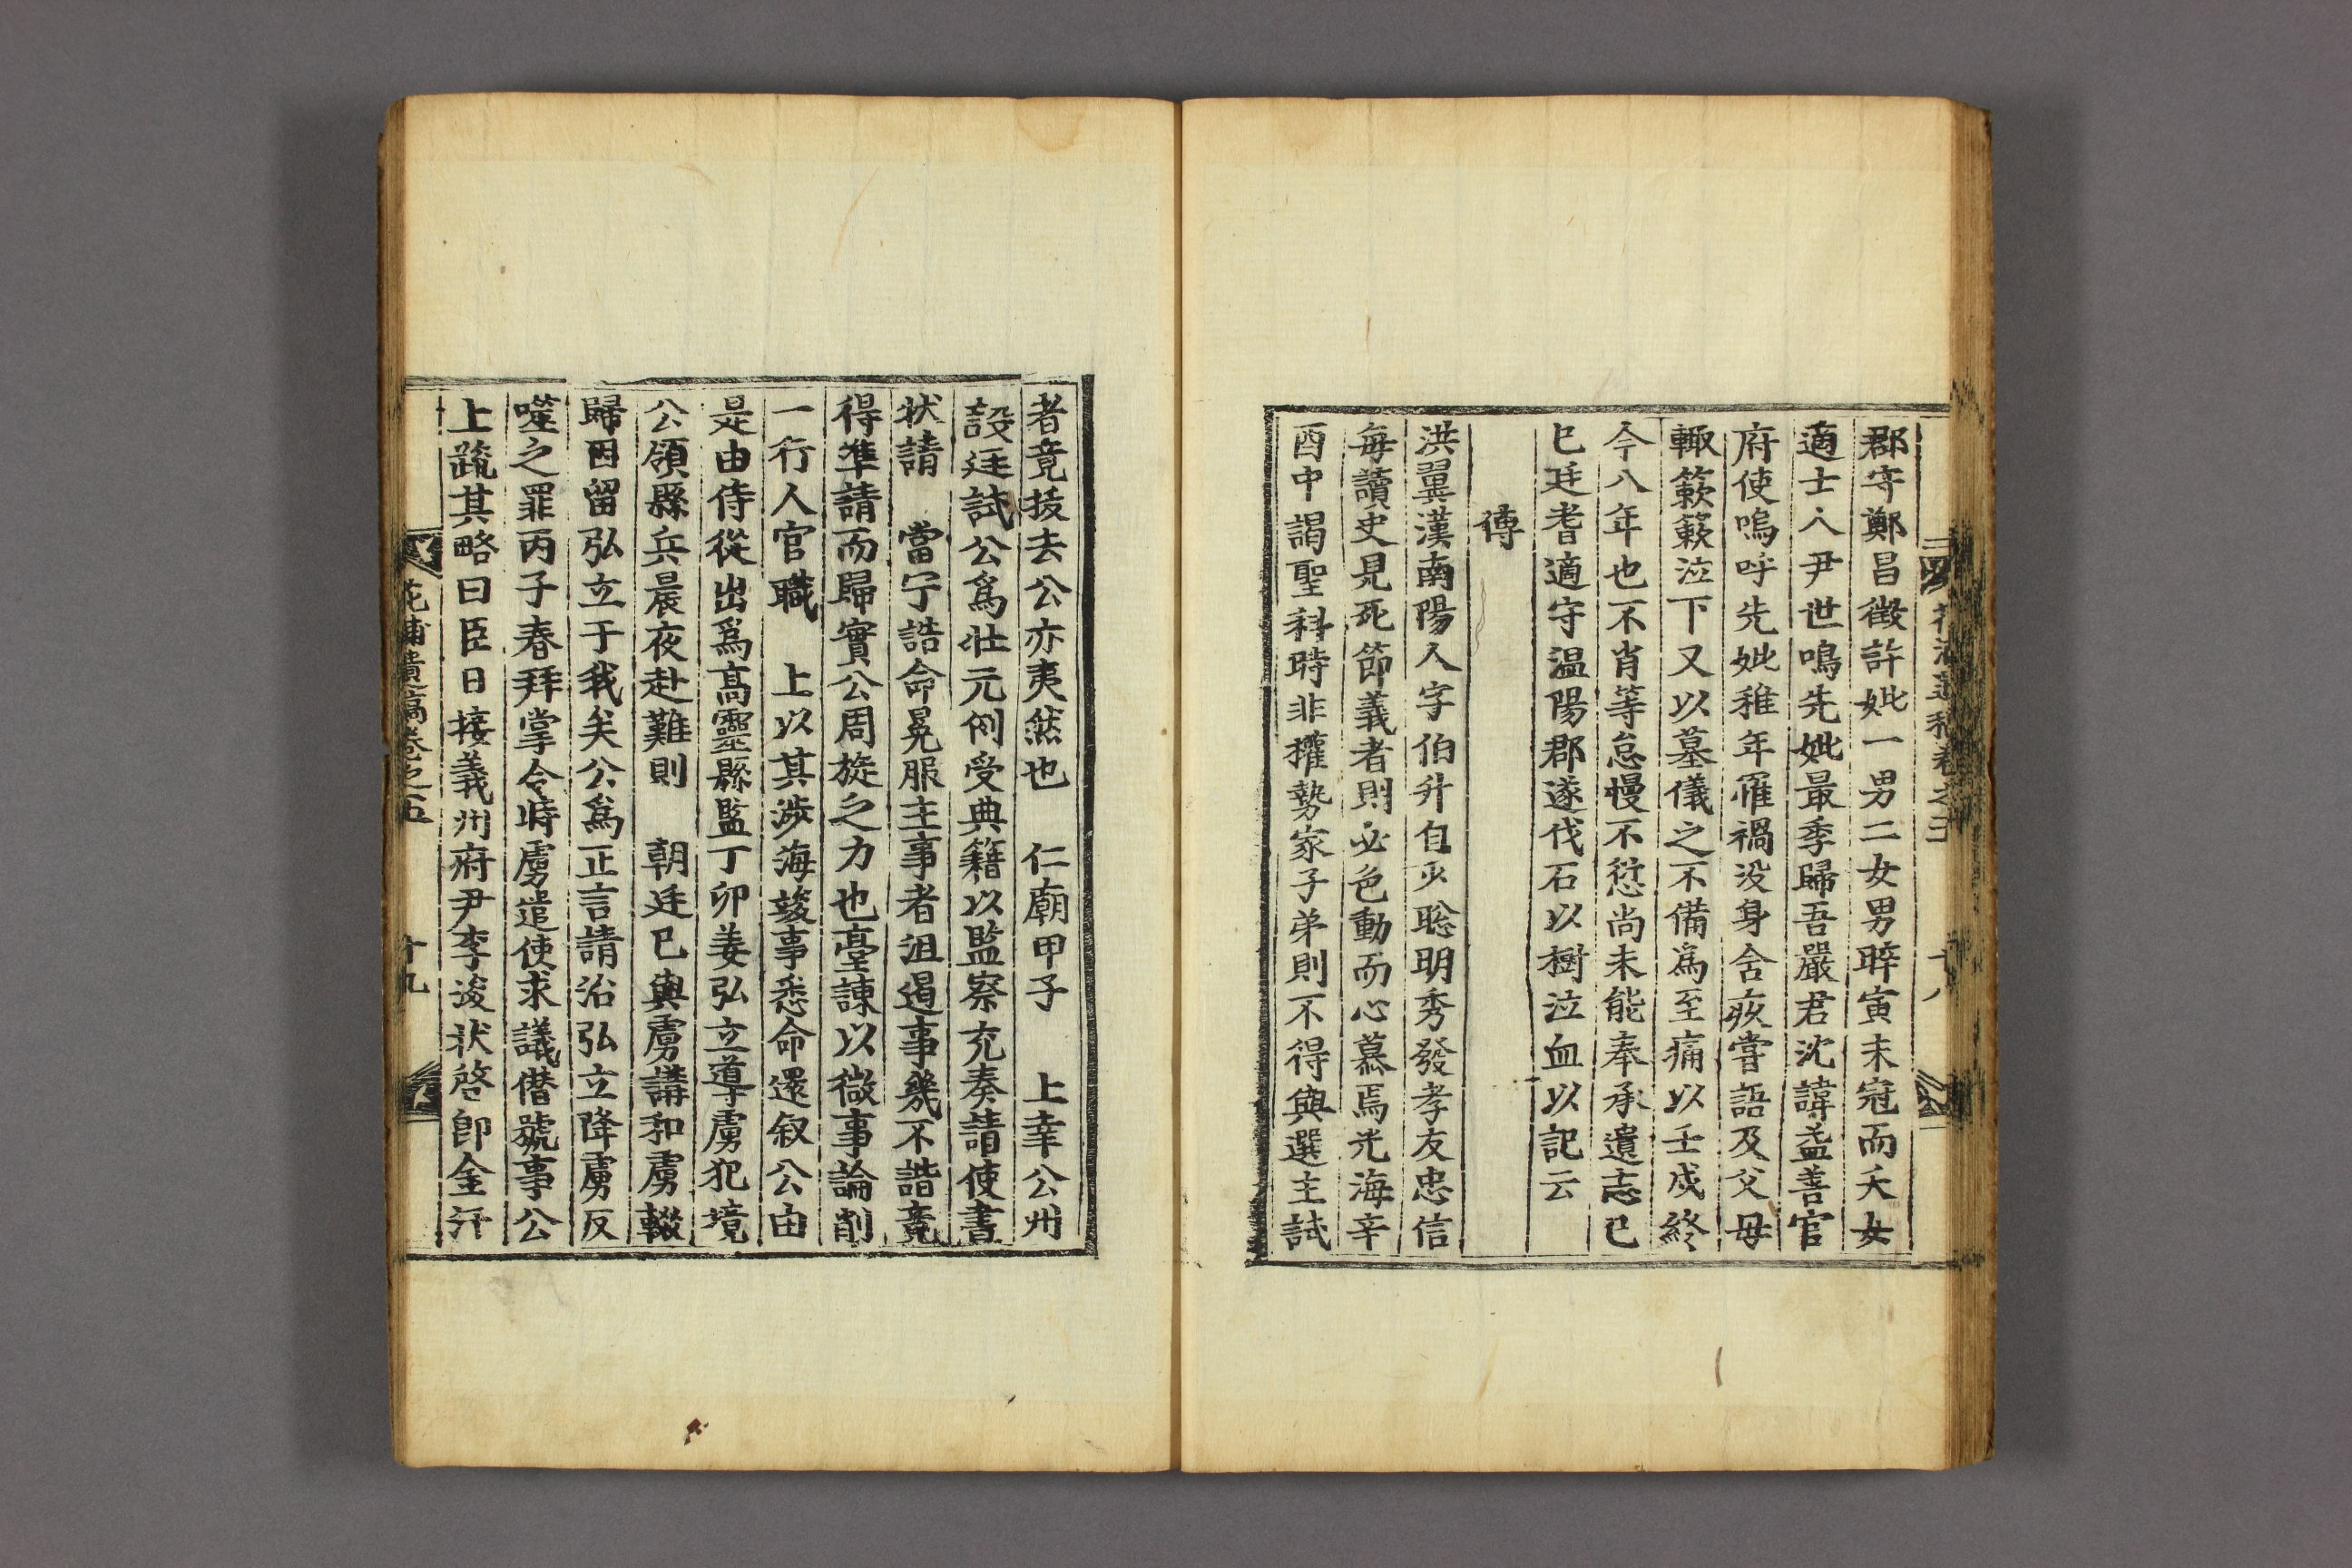 郡守鄭昌徵許妣一男二女男晬寅未冠而夭女
適士人尹世鳴先妣最季歸吾嚴君沈諱益善官
府使嗚呼先妣稚年罹禍没身含疚嘗語及父母
輙簌簌泣下又以墓儀之不備爲至痛以壬戌終
今八年也不肖等怠慢不愆尚未能奉承遺志已
巳廷耆適守温陽郡遂伐石以樹泣血以記云
傳
洪翼漢南陽人字伯升自少聡明秀發孝友忠信
每讀史見死節義者則必色動而心慕焉光海辛
酉中謁聖科時非權勢家子弟則不得與選主試
者竟拔去公亦夷然也 仁廟甲子 上幸公州
設廷試公爲壮元例受典籍以監察充奏請使書
状請 當宁誥命冕服主事者沮遏事幾不諧竟
得準請而歸實公周旋之力也臺諫以微事論削
一行人官職 上以其渉海竣事悉命還叙公由
是由侍從出爲髙靈縣監丁卯姜弘立導虜犯境
公領縣兵晨夜赴難則 朝廷已與虜講和虜輟
歸因留弘立于我矣公爲正言請治弘立降虜反
噬之罪丙子春拜掌令時虜遣使求議僣號事公
上䟽其略曰臣日接義州府尹李浚状啓即金汗
花浦遺稿卷之五 十九